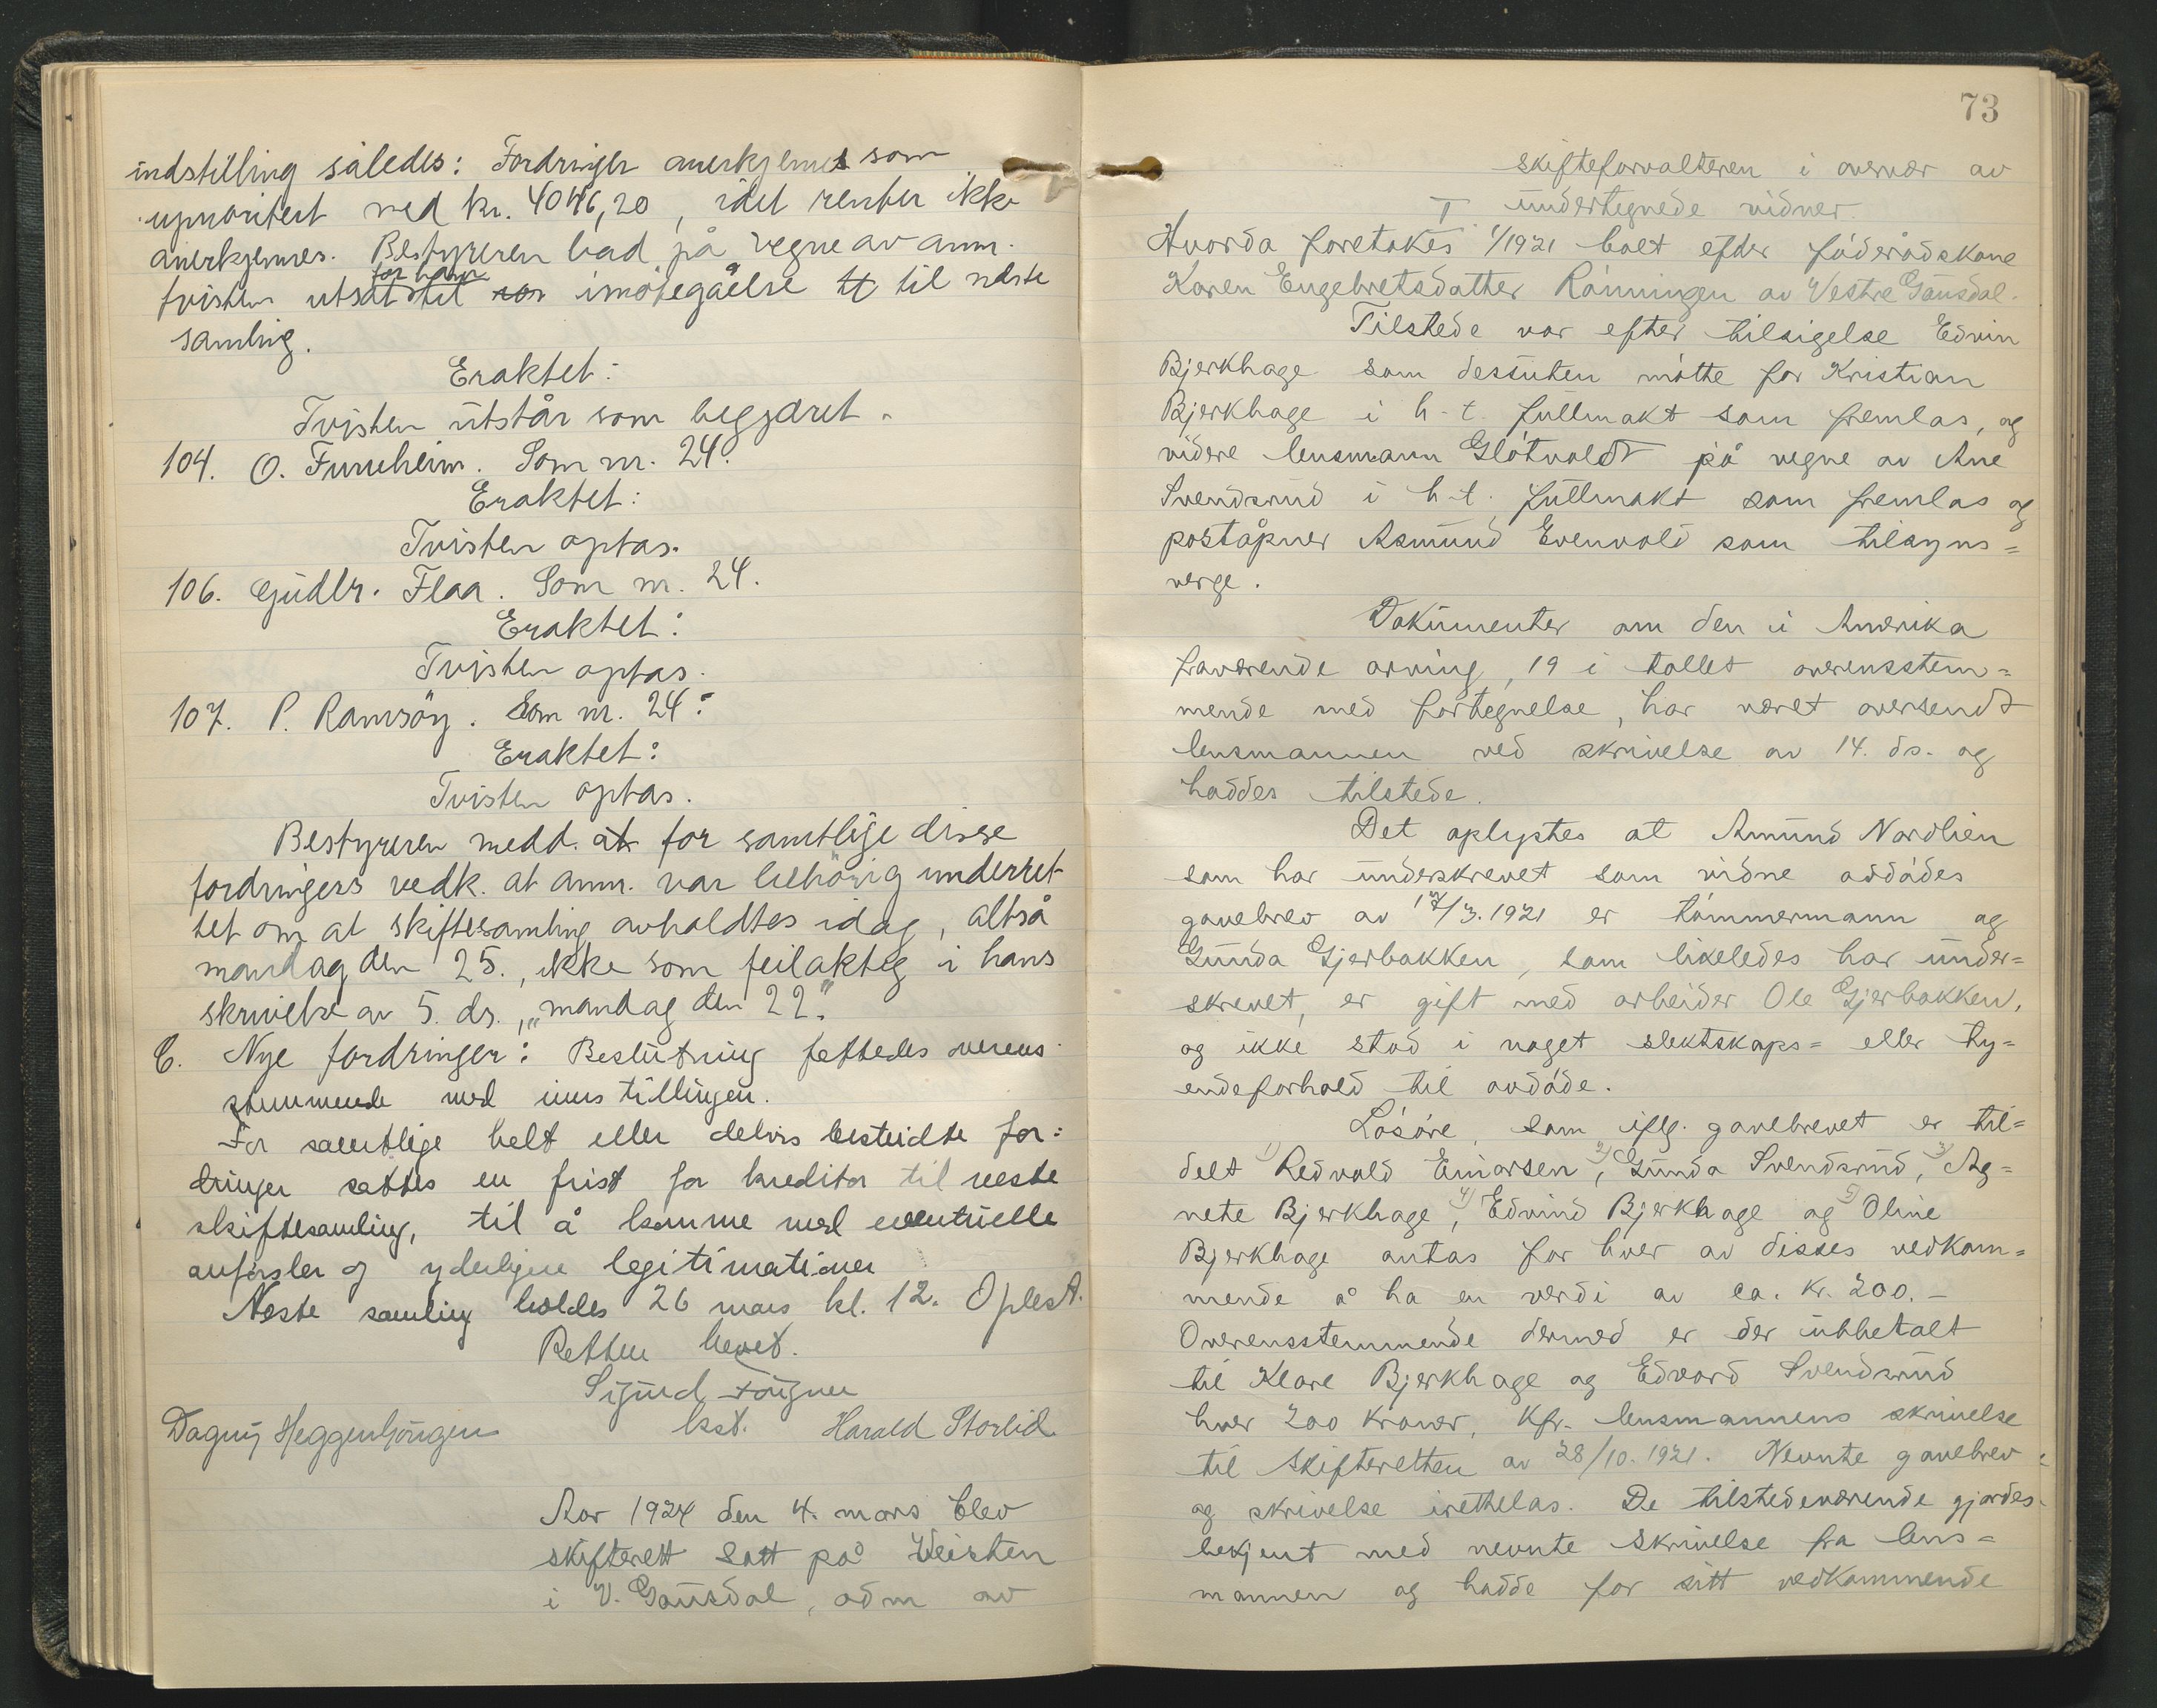 indstilling således: Fordringen anerkjennes som
uprioritert med kr. 4046,20, idet renter ikke
anerkjennes. Bestyreren bad på vegne av anm.
for ham
tvisten utsat til imøtegåelse til neste
samling.
Eraktet:
Tvisten utstår som begjæret.
104. O. Furuheim. Som nr. 24.
Eraktet:
Tvisten optas.
106. Gudbr. Flaa. Som nr. 24.
Eraktet:
Tvisten optas.
107. P. Ramsöy. Som nr. 24:
Eraktet:
Tvisten optas.
Bestyreren medd. at for samtlige disse
fordringers vedk. at anm. var behörig underret-
tet om at skiftesamling avholdtes idag, altså
mandag den 25., ikke som feilaktig i hans
skrivelse av 5. ds., „mandag den 22."
C. Nye fordringer: Beslutning fattedes overens-
stemmende med innstillingen.
For samtlige helt eller delvis bestridte for=
dringer sattes en frist for kreditor til neste
skiftesamling, til å komme med eventuelle
anførsler og yderligere legitimationer
Neste samling holdes 26 mars kl. 12. Oplest.
Retten hevet.
Sigurd
kst. Harald Storlid.
Dagny Heggenhougen
Aar 1924 den 4. mars blev
skifterett satt på Veisten
i V. Gausdal, adm av
73
skifteforvalteren i overvær av
undertegnede vidner.
Hvorda foretokes 1/1921 boet efter föderådskone
Karen Engebretsdatter Rönningen av Vestre Gausdal.
Tilstede var efter tilsigelse Edvin
Bjerkhage som desuten mötte for Kristian
Bjerkhage i h.t. fullmakt som fremlas, og
videre lensmann Glötvoldt på vegne av Ane
Svendsrud i h.t. fullmakt som fremlas og
poståpner Asmund Evenvold som tilsyns=
verge.
Dokumenter om den i Amerika
fraværende arving, 19 i tallet overensstem=
mende med fortegnelse, har været oversendt
lensmannen ved skrivelse av 14. ds. og
haddes tilstede.
Det oplystes at Amund Nordlien
som har underskrevet som vidne avdödes
gavebrev av 17/3.1921 er tömmermann og
Gunda Gjerbakken, som likeledes har under=
skrevet, er gift med arbeider Ole Gjerbakken,
og ikke stod i noget slektskaps= eller ty=
endeforhold til avdöde.
Lösöre, som iflg. gavebrevet er til=
delt 1) Redvald Einarsen, 2) Gunda Svendsrud, 3) Ag=
nete Bjerkhage, 4) Edvind Bjerkhage og 5) Oline
Bjerkhage antas for hver av disses vedkom=
mende å ha en verdi av ca. kr. 200.-
Overensstemmende dermed er der utbetalt
til Klare Bjerkhage og Edvard Svendsrud
hver 200 kroner, kfr. lensmannens skrivelse
til skifteretten av 28/10.1921. Nevnte gavebrev
og skrivelse irettelas. De tilstedeværende gjordes
bekjent med nevnte skrivelse fra lens=
mannen og hadde for sitt vedkommende